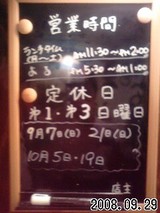 営業時間
ランチタイム
(月〜土)
AM11:30〜PM2:00
よる
PM5:30〜AM1:00
定休日
第1・第3日曜日
9月7日(日)21(日)
10月5日・19日
店主
2008.09.29